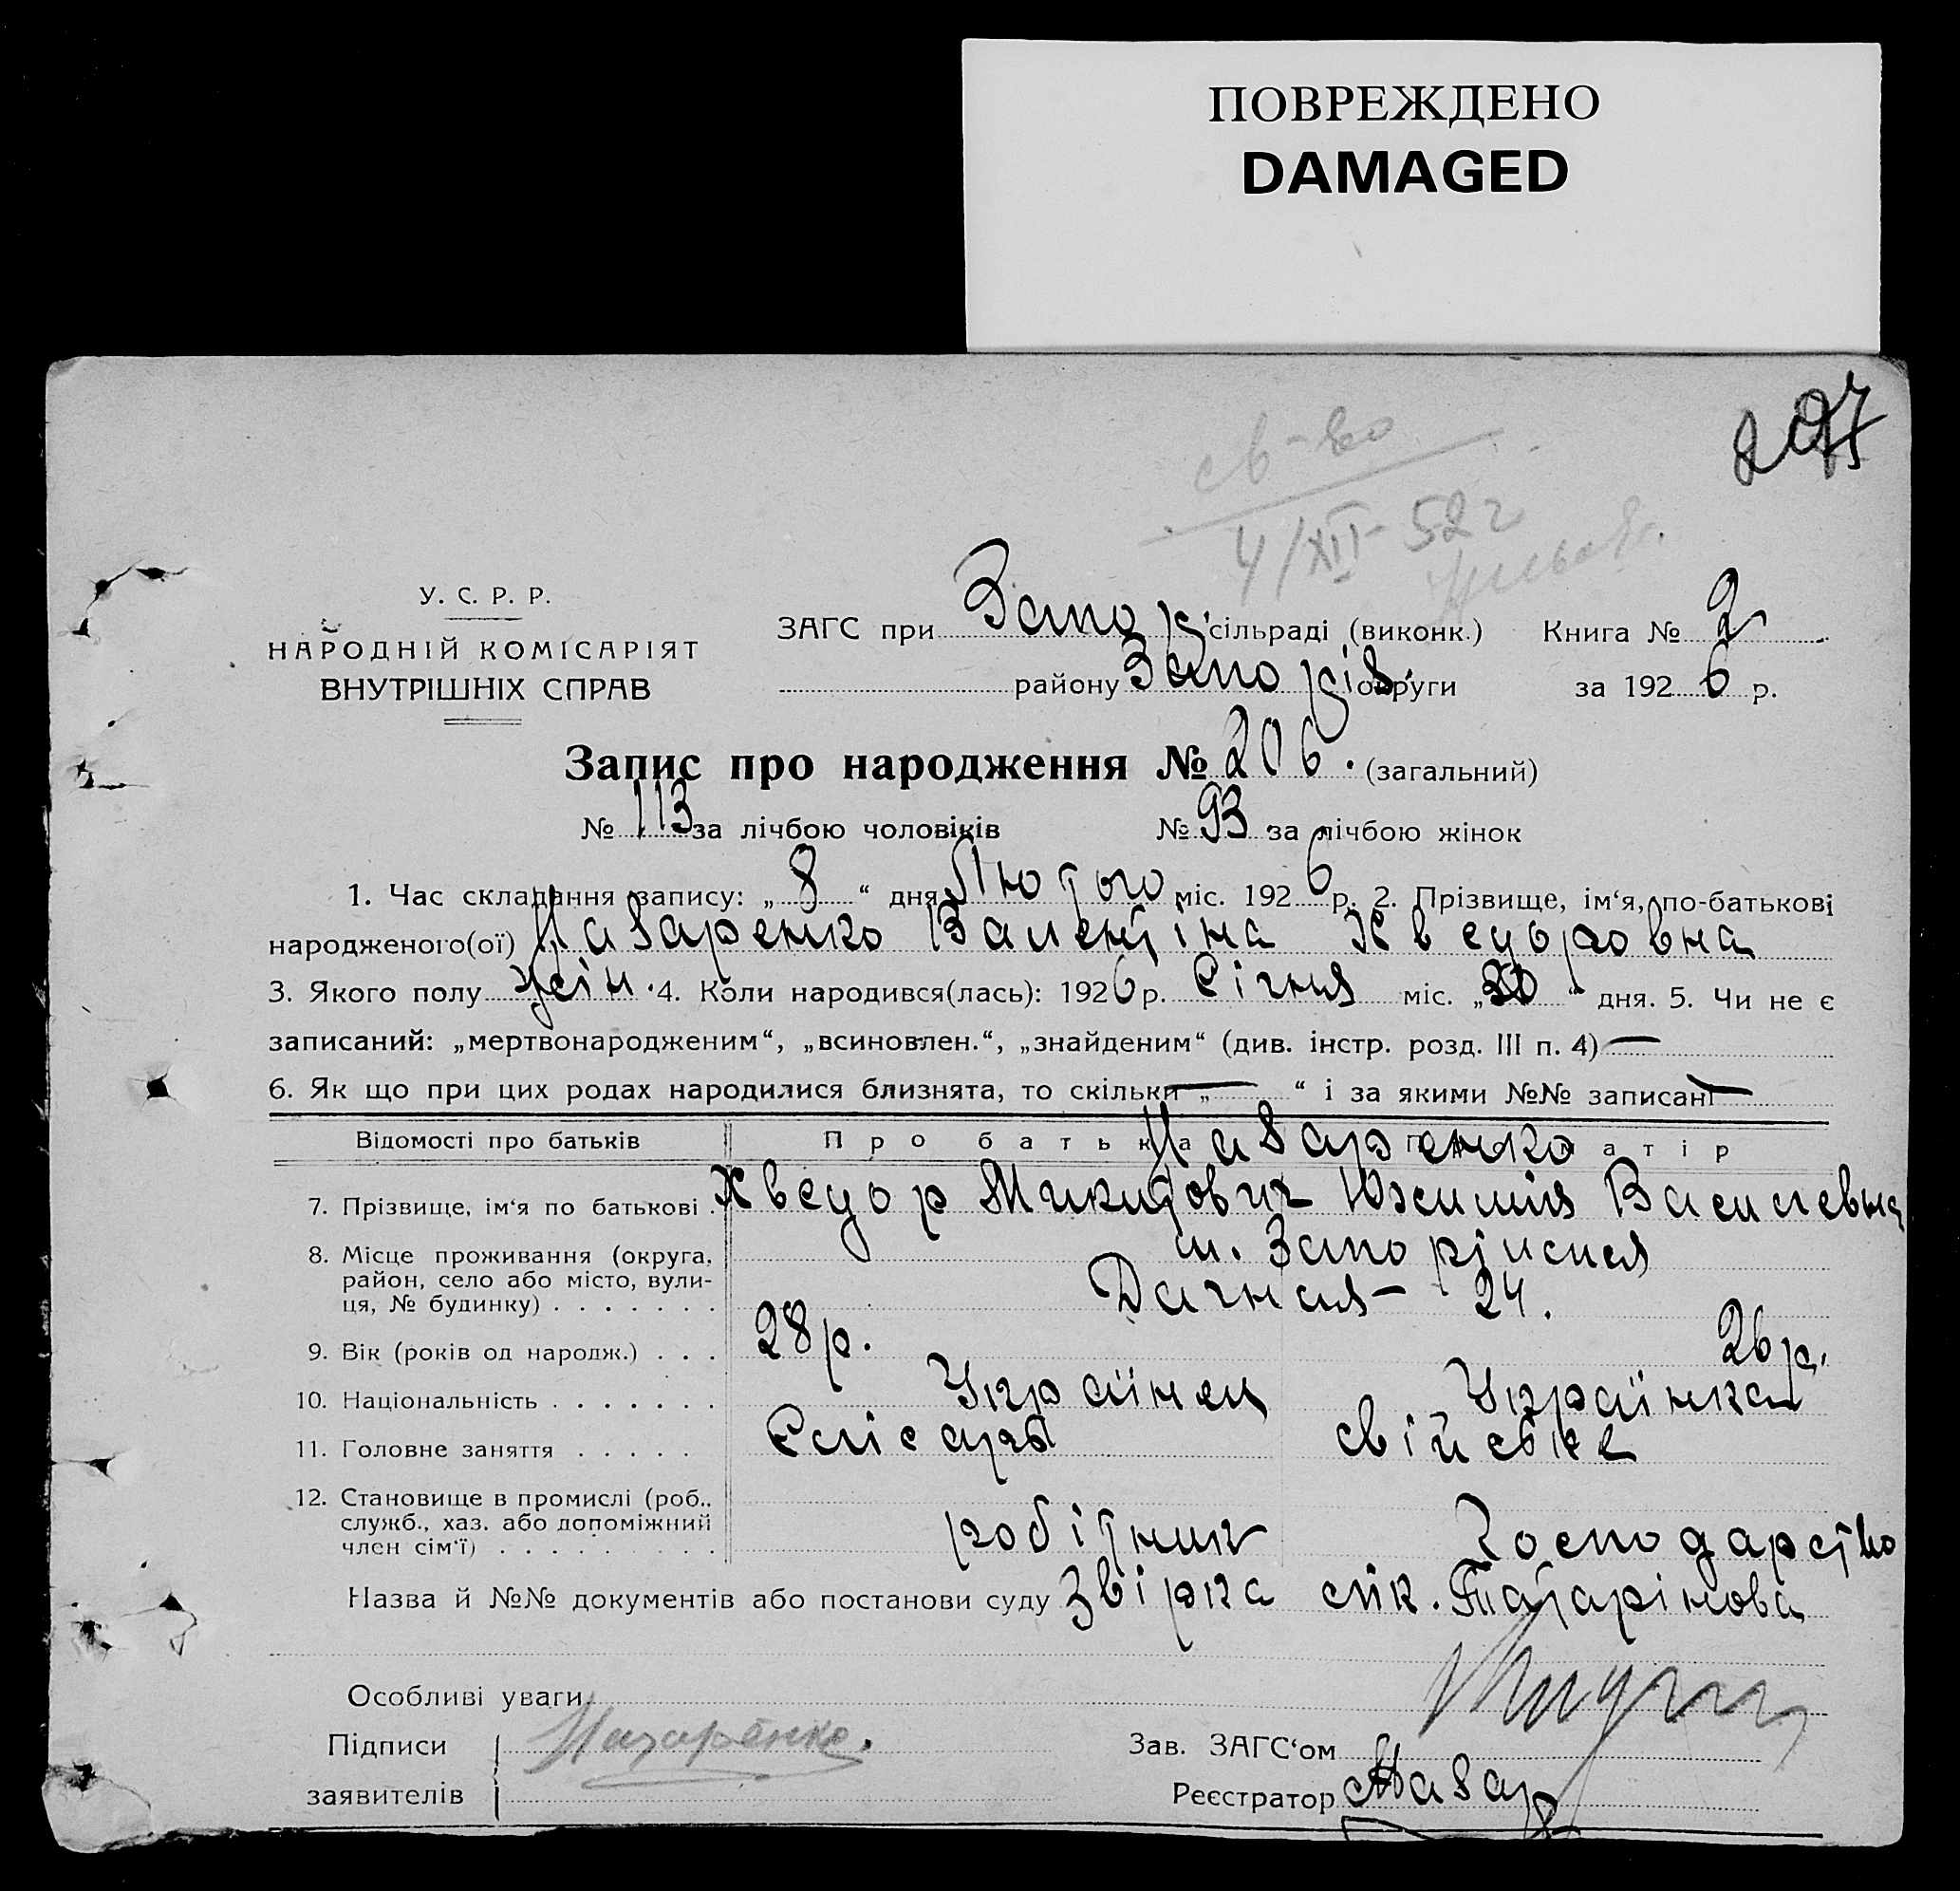 ПОВРЕЖДЕНО
DAMAGED
207
св-во
4/XII-52 г
У. С. Р. Р.
НАРОДНІЙ КОМІСАРІЯТ
ВНУТРІШНІХ СПРАВ
ЗАГС при Запор. сільраді (виконк.) Книга № 2
району Запоріз. округи за 1926 р.
Запис про народження № 206. (загальний)
№ 113 за лічбою чоловіків № 93 за лічбою жінок
1. Час складання запису: „8“ дня Лютого міс. 1926 р. 2. Прізвище, ім‘я, по-батькові
народженого(ої) Назаренко Валентіна Хведоровна
3. Якого полу жін. 4. Коли народився(лась): 1926 р. Січня міс. „30“ дня. 5. Чи не є
записаний: „мертвонародженим“, „всиновлен.“, „знайденим“ (див. інстр. розд. III п. 4) —
6. Як що при цих родах народилися близнята, то скільки „—“ і за якими №№ записані —
Відомості про батьків Про батька Назаренко матір
7. Прізвище, ім‘я по батькові . Хведор Микитович Юхимія Василевна
8. Місце проживання (округа, район, село або місто, вулиця, № будинку) . . . . . . . м. Запоріжжя
Дачная – 24.
9. Вік (років од народж.) . . . 28 р. 26 р.
10. Національність . . . . . . . Українец Українка
11. Головне заняття . . . . . Слісарь свійське
12. Становище в промислі (роб., служб., хаз. або допоміжний член сім‘ї) . . . . . . . . . робітник господарство
Назва й №№ документів або постанови суду Звірка спк. Татарінова
Особливі уваги
Підписи заявителів Назаренко.
Зав. ЗАГС‘ом
Реєстратор